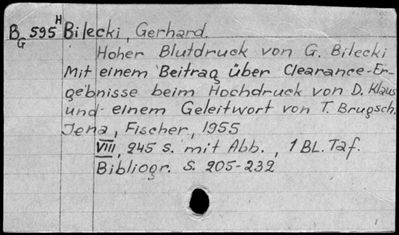 B 595 H Bilecki, Gerhard.
G
Hoher Blutdruck von G. Bilecki
Mit einem Beitrag über Clearance-Er-
gebnisse beim Hochdruck von D. Klaus
und einem Geleitwort von T. Brugsch.
Jena, Fischer, 1955
VIII, 245 S. mit Abb., 1 BL. Taf.
Bibliogr. S. 205-232